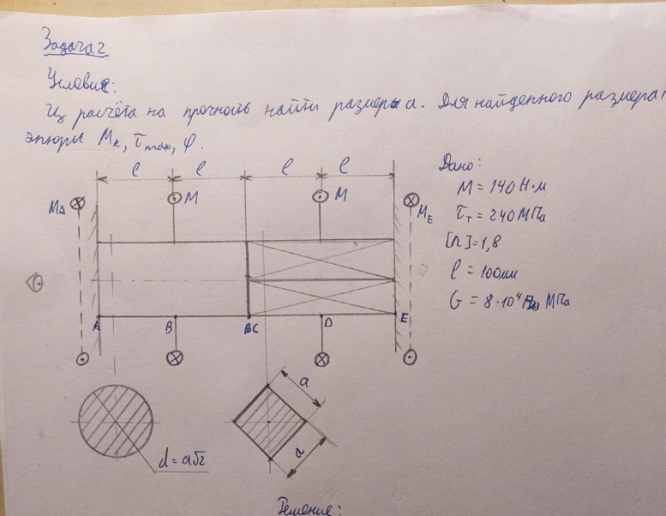 Задача 2
Условие:
Из расчёта на прочность найти размеры а. Для найденного размера
эпюры Mк, τmax, φ.
ℓ ℓ ℓ ℓ
MA M M ME
Дано:
M = 140 Н·м
τт = 240 МПа
[n] = 1,8
ℓ = 100мм
G = 8·10⁴ МПа
A B C D E
a
a
d = a√2
Решение: